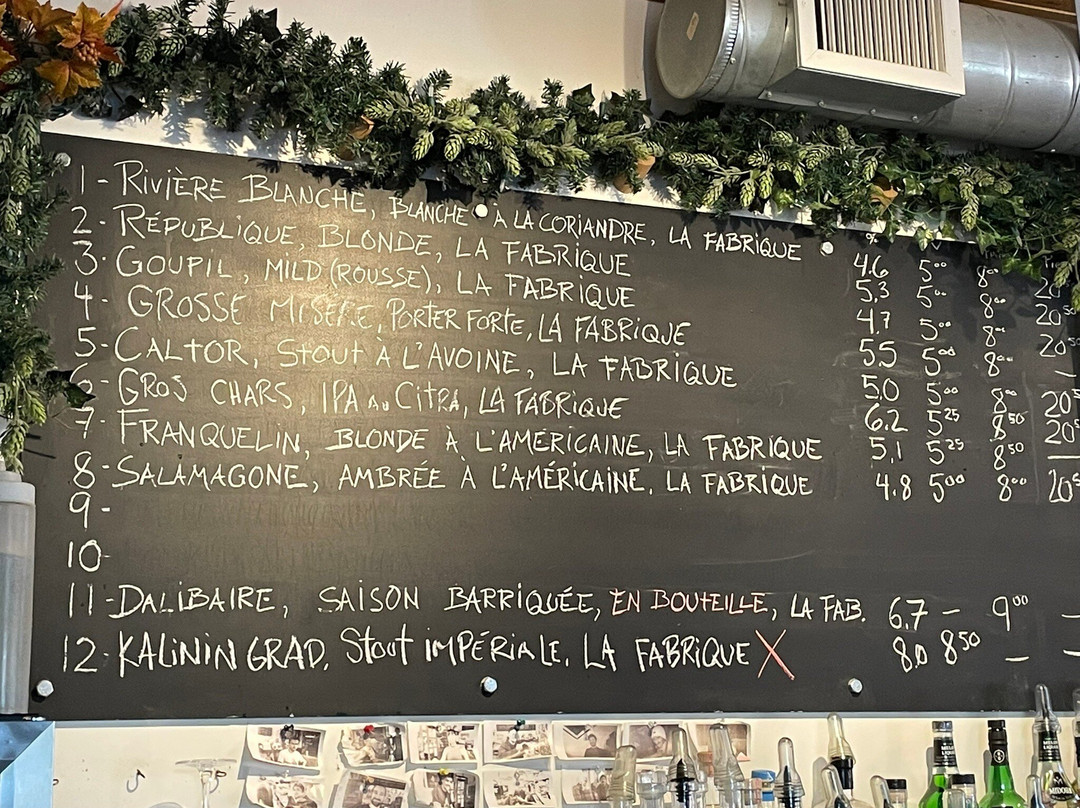 % 
1- RIVIÈRE BLANCHE, BLANCHE À LA CORIANDRE, LA FABRIQUE 4.6 5⁰⁰ 8⁰⁰ 20
2- RÉPUBLIQUE, BLONDE, LA FABRIQUE 5.3 5⁰⁰ 8⁰⁰ 20⁵⁰
3- GOUPIL, MILD (ROUSSE), LA FABRIQUE 4.7 5⁰⁰ 8⁰⁰ 20⁵⁰
4- GROSSE MISÈRE, PORTER FORTE, LA FABRIQUE 5.5 5⁰⁰ 8⁰⁰ —
5- CALTOR, STOUT À L'AVOINE, LA FABRIQUE 5.0 5⁰⁰ 8⁰⁰ 20⁵
6- GROS CHARS, IPA AU CITRA, LA FABRIQUE 6.2 5²⁵ 8⁵⁰ 20⁵
7- FRANQUELIN, BLONDE À L'AMÉRICAINE, LA FABRIQUE 5.1 5²⁵ 8⁵⁰ —
8- SALAMAGONE, AMBRÉE À L'AMÉRICAINE, LA FABRIQUE 4.8 5⁰⁰ 8⁰⁰ 20⁵
9-
10-
11- DALIBAIRE, SAISON BARRIQUÉE, EN BOUTEILLE, LA FAB. 6.7 — 9⁰⁰ —
12- KALININGRAD, STOUT IMPÉRIALE, LA FABRIQUE X 8.0 8⁵⁰ — —